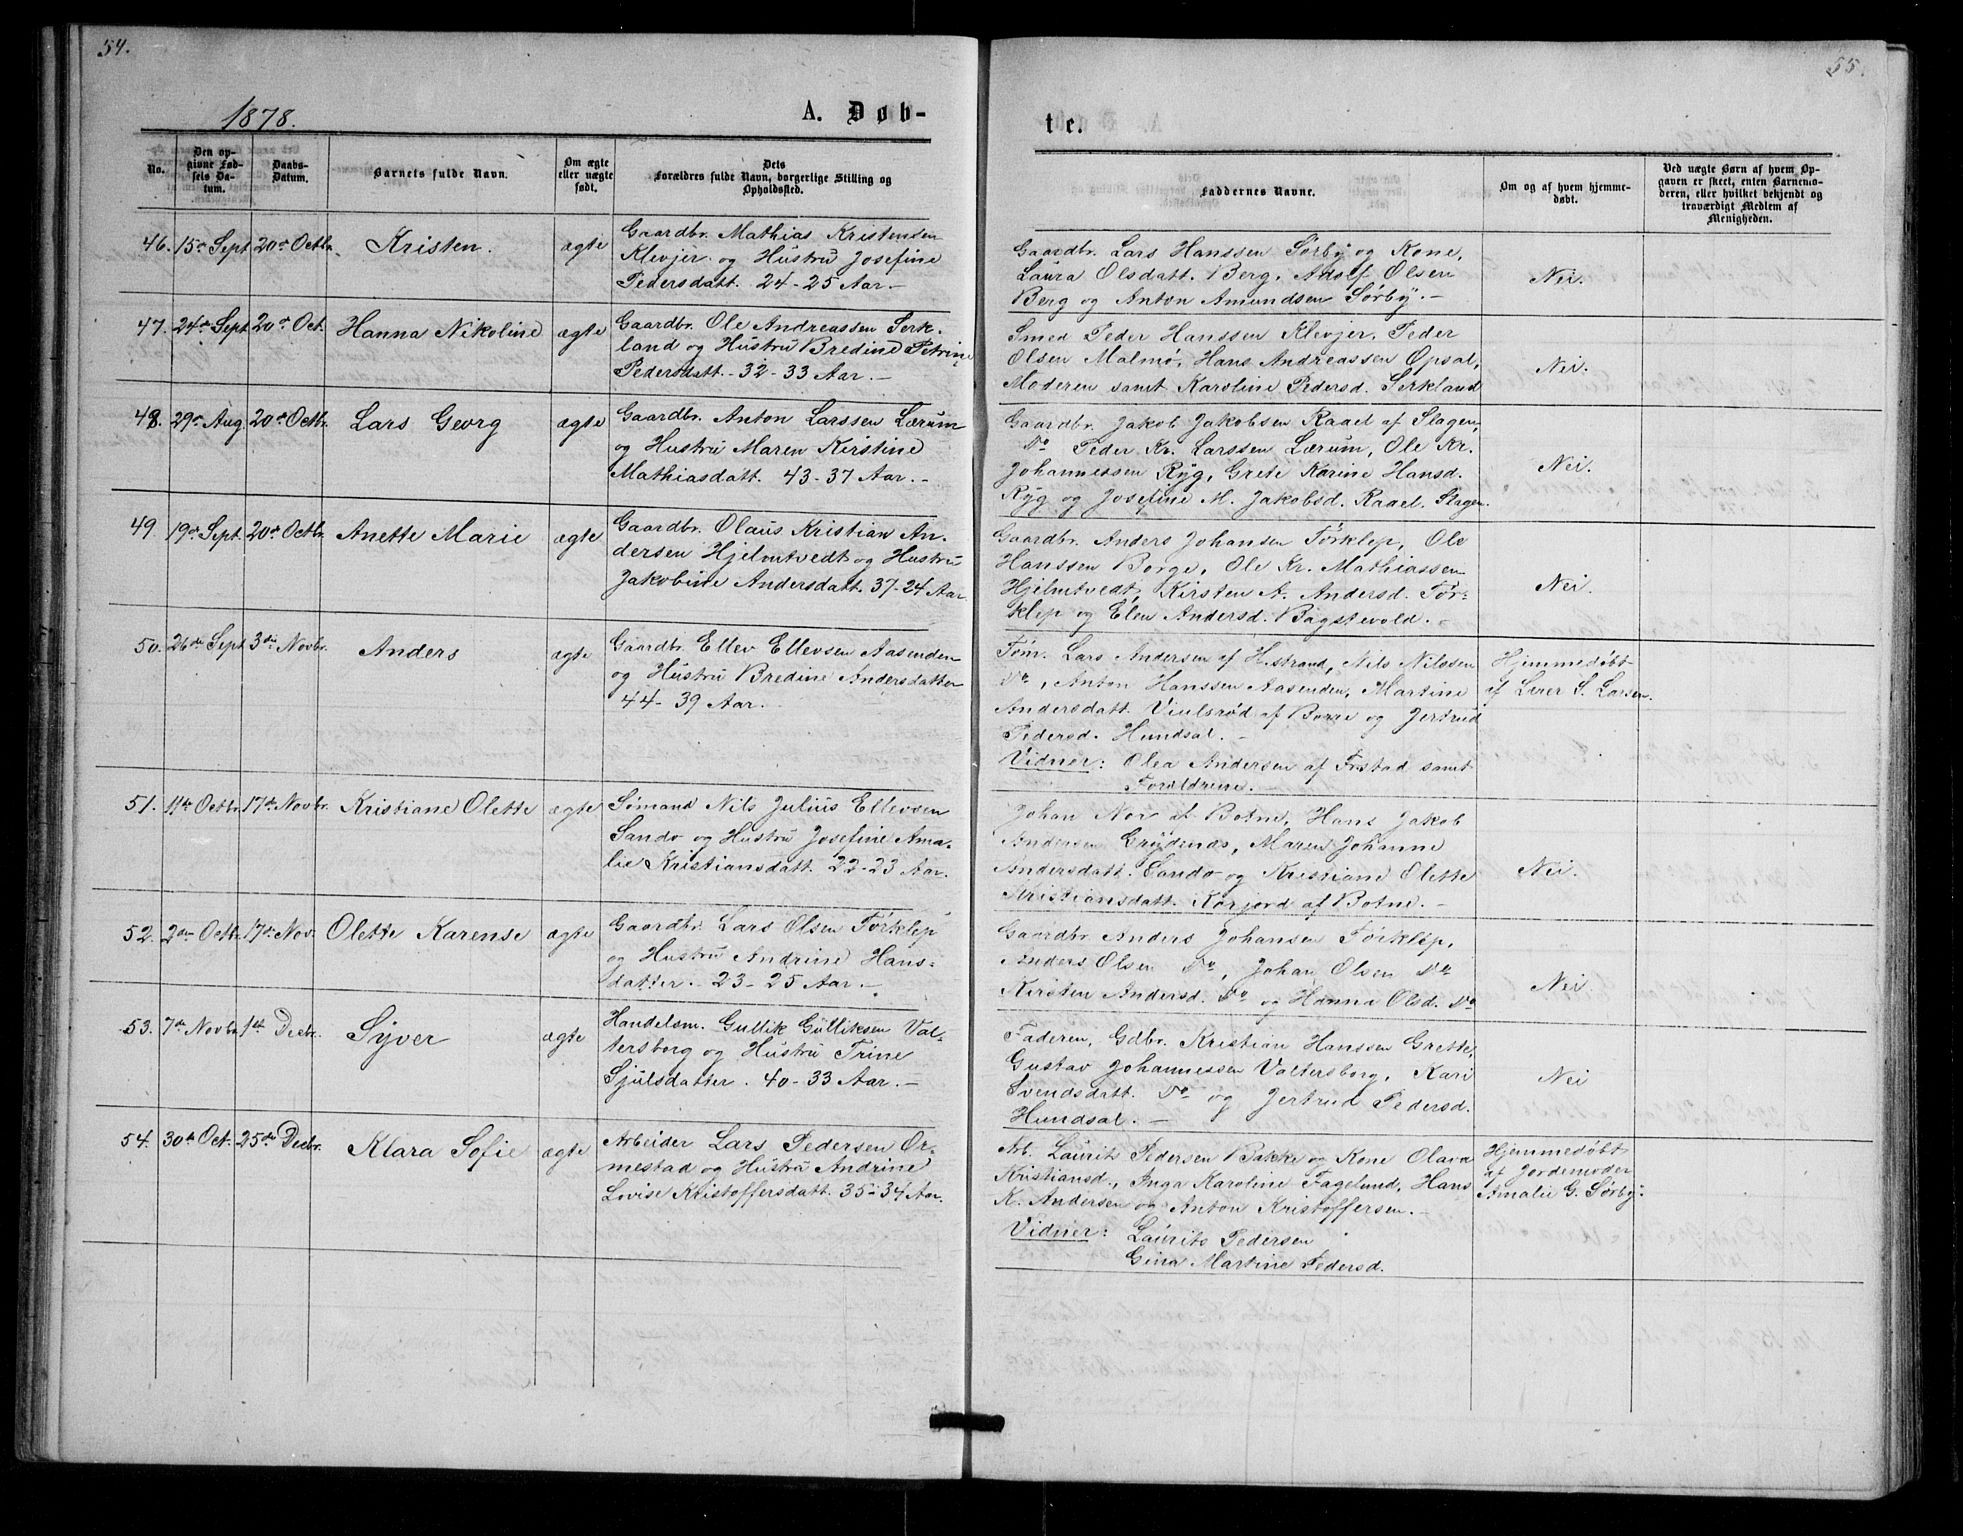 54.
1878.
A. Døb-
No.
Den op-
givne Fød-
sels Da-
tum.
Daabs-
Datum.
Barnets fulde Navn.
Om ægte
eller uægte
født.
Dets
Forældres fulde Navn, borgerlige Stilling og
Opholdssted.
46. 15de Sept 20de Octbr. Kristen. ægte
Gaardbr. Mathias Kristensen
Klevjer og Hustru Josefine
Pedersdatt. 24-25 Aar.-
47. 24de Sept 20de Oct. Hanna Nikoline ægte
Gaardbr. Ole Andreassen Serk-
land og Hustru Bredine Petrine
Pedersdatt.- 32-33 Aar.-
48. 29de Aug 20de Octbr. Lars Georg ægte
Gaardbr. Anton Larssen Lærum
og Hustru Maren Kirstine
Mathiasdatt. 43-37 Aar.-
49. 19de Sept. 20de Octbr. Anette Marie ægte
Gaardbr. Olaus Kristian An-
dersen Hjelmtvedt og Hustru
Jakobine Andersdatt. 37-24 Aar
50. 26de Sept 3die Novbr. Anders ægte
Gaardbr. Ellev Ellevsen Aasenden
og Hustru Bredine Andersdatter
44-39 Aar.
51. 11te Octbr. 17de Novbr. Kristiane Olette ægte
Sømand Nils Julius Ellevsen
Sando og Hustru Josefine Ama-
lie Kristiansdatt. 22-23 Aar.
52. 2den Octbr. 17de Nov. Olette Karense ægte
Gaardbr. Lars Olsen Førklep
og Hustru Andrine Hans-
datter.- 23-25 Aar.-
53. 7de Novbr. 1ste Decbr. Syver ægte
Handelsm. Gullik Gulliksen Val-
tersborg og Hustru Trine
Sjulsdatter. 40-33 Aar.-
54. 30te Oct. 25de Decbr. Klara Sofie ægte
Arbeider Lars Pedersen Or-
mestad og Hustru Andrine
Lovise Kristoffersdatt. 35-34 Aar.
55.
te.
Faddernes Navne.
Om og af hvem hjemme-
døbt.
Ved uægte Børn af hvem Op-
gaven er skeet, enten Barnemo-
deren, eller hvilket bekjendt og
troværdigt Medlem af
Menigheden.
Gaardbr. Lars Hanssen Sørby og Kone,
Laura Olsdatt. Berg, Adolf Olsen
Berg og Anton Amundsen Sørby.-
Nei.
Smed Peder Hanssen Klevjer, Peder
Olsen Malmø, Hans Andreassen Opsal,
Moderen samt Karoline Pedersd. Serkland
Nei.
Gaardbr. Jakob Jakobsen Raael af Slagen,
Do Peder Kr. Larssen Lærum, Ole Kr.
Johannessen Ryg, Grete Karine Hansd.
Ryg og Josefine M. Jakobsd. Raael. Slagen.
Nei.
Gaardbr. Anders Johansen Førklep, Ole
Hanssen Borge, Ole Kr. Mathiassen
Hjelmtvedt, Kirsten A. Andersd. Før-
klep og Elen Andersd. Bagstevold.-
Nei.
Tøm. Lars Andersen af Hstrand, Nils Nilssen
Do, Anton Hanssen Aasenden, Martine
Andersdatt. Viulsrød af Borre og Jertrud
Pedersd. Hundsal.-
Vidner: Olea Andersen af Frstad samt
Forældrene.-
Hjemmedøbt
af Lærer S. Larsen.
Johan Nor af Botne, Hans Jakob
Andersen Grydenæs, Maren Johanne
Andersdatt. Sando og Kristiane Olette
Kristiansdatt. Korjord af Botne.-
Nei.
Gaardbr. Anders Johansen Førklep,
Anders Olsen Do, Johan Olsen Do
Kirsten Andersd. Do og Hanna Olsd. Do
Nei.
Faderen, Gdbr. Kristian Hanssen Grette,
Gustav Johannessen Valtersborg, Kari
Svendsdatt. Do og Jertrud Pedersd.
Hundsal.-
Nei
Arb. Laurits Pedersen Bakke og Kone Olava
Kristiansd., Inga Karoline Fagelund, Hans
K. Andersen og Anton Kristoffersen.-
Vidner: Laurits Pedersen
Gina Martine Pedersd.
Hjemmedøbt
af Jordemoder
Amalie G. Sørby.